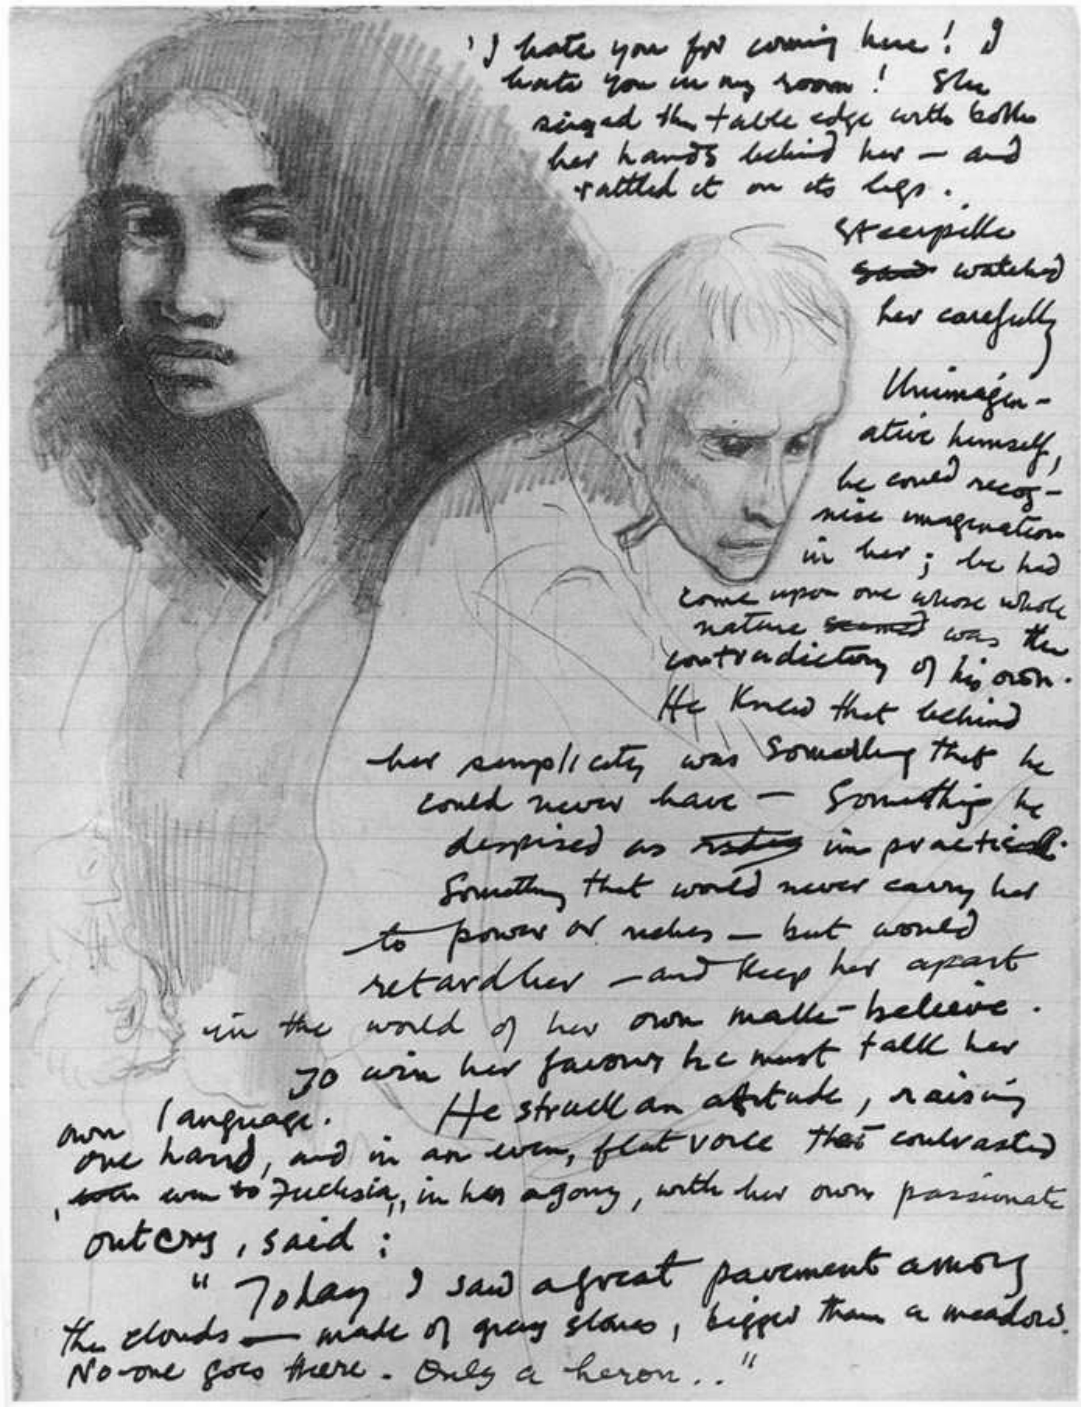 'I hate you for coming here! I
hate you in my room! She
siezed the table edge with both
her hands behind her — and
rattled it on its legs.
Steerpike
said watched
her carefully
Unimagin-
ative himself,
he could recog-
nise imagination
in her; he had
come upon one whose whole
nature seemed was the
contradictory of his own.
He knew that behind
her simplicity was something that he
could never have — Something he
despised as impractical.
Something that would never carry her
to power or riches — but would
retard her — and keep her apart
in the world of her own make-believe.
To win her favour he must talk her
own language. He struck an attitude, raising
one hand, and in an even, flat voice that contrasted
, even to Fuchsia, in her agony, with her own passionate
outcry, said:
"Today I saw a great pavement among
the clouds — made of grey stones, bigger than a meadow.
No-one goes there. Only a heron.."